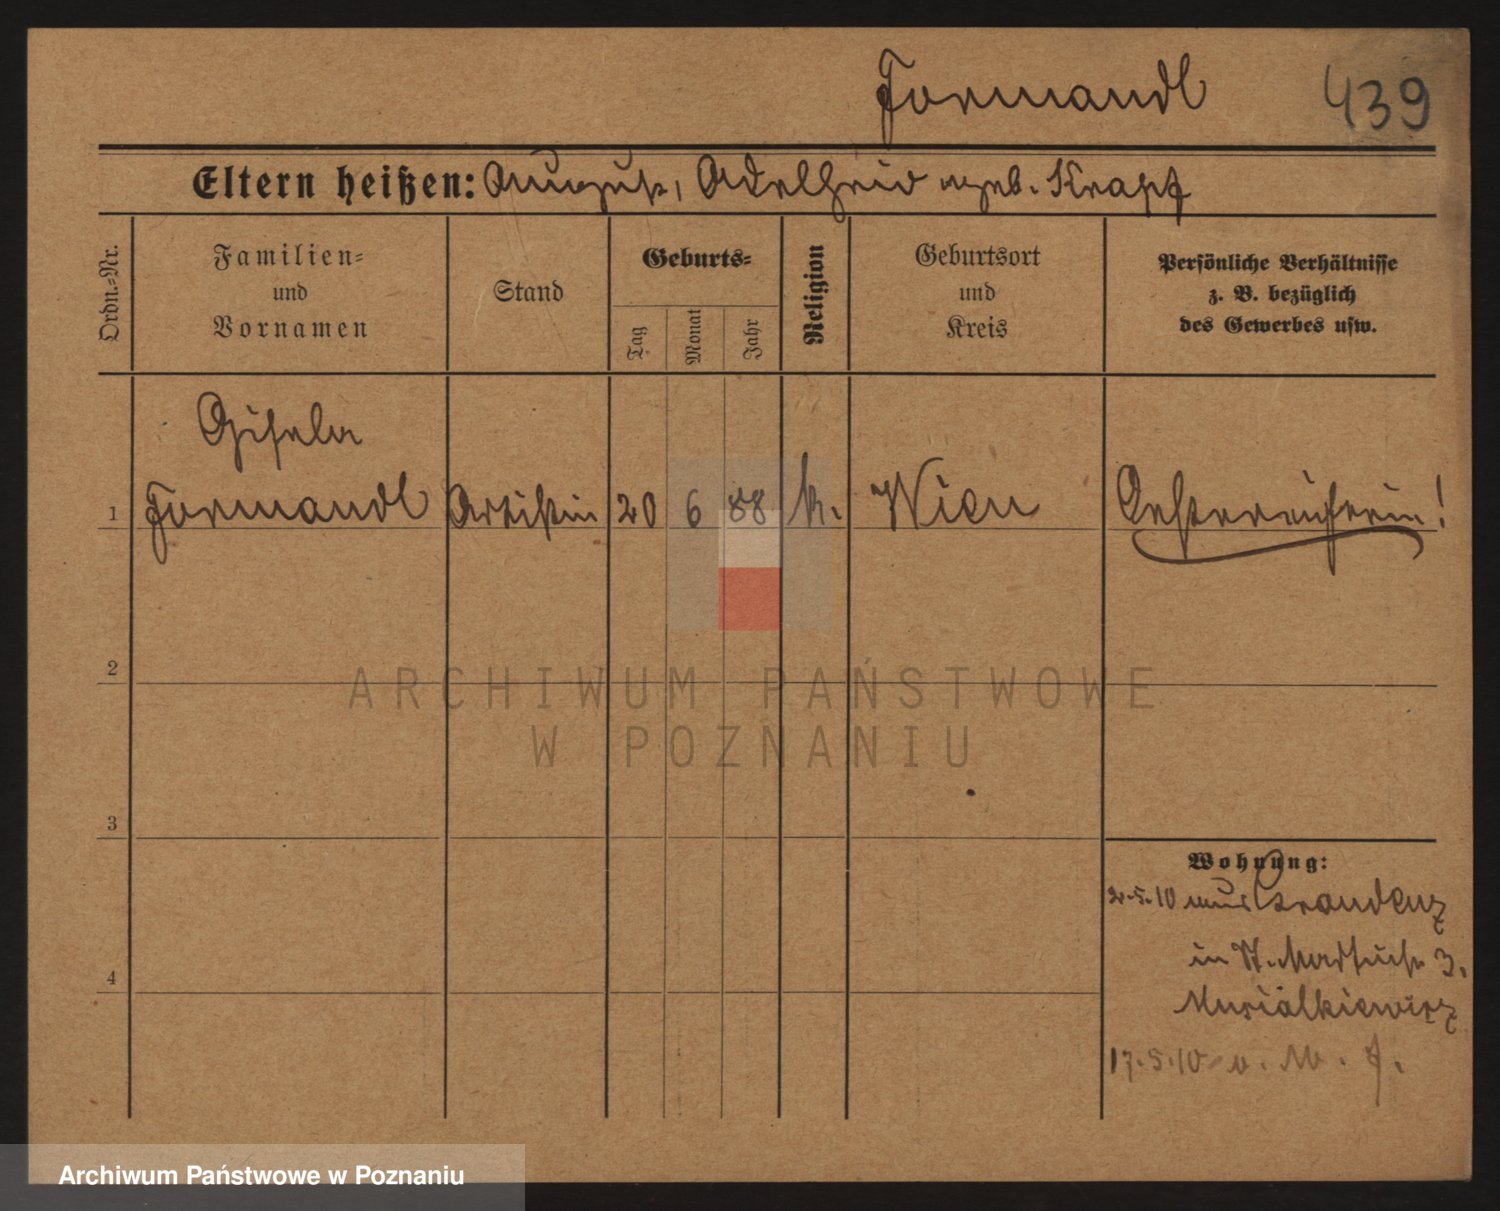 Formandl 439
Eltern heißen: August, Adelheid geb. Krapf
Ordn.-Nr.
Familien-
und
Vornamen
Stand
Geburts-
Tag
Monat
Jahr
Religion
Geburtsort
und
Kreis
Persönliche Verhältnisse
z. B. bezüglich
des Gewerbes usw.
Gisela
1 Formandl Artistin 20 6 88 k. Wien Oesterreicherin!
2
ARCHIWUM PAŃSTWOWE
W POZNANIU
3
Wohnung:
2.5.10 aus Graudenz
in St. Martinstr 3.
Musialkiewicz
4
17.5.10 v.
Archiwum Państwowe w Poznaniu